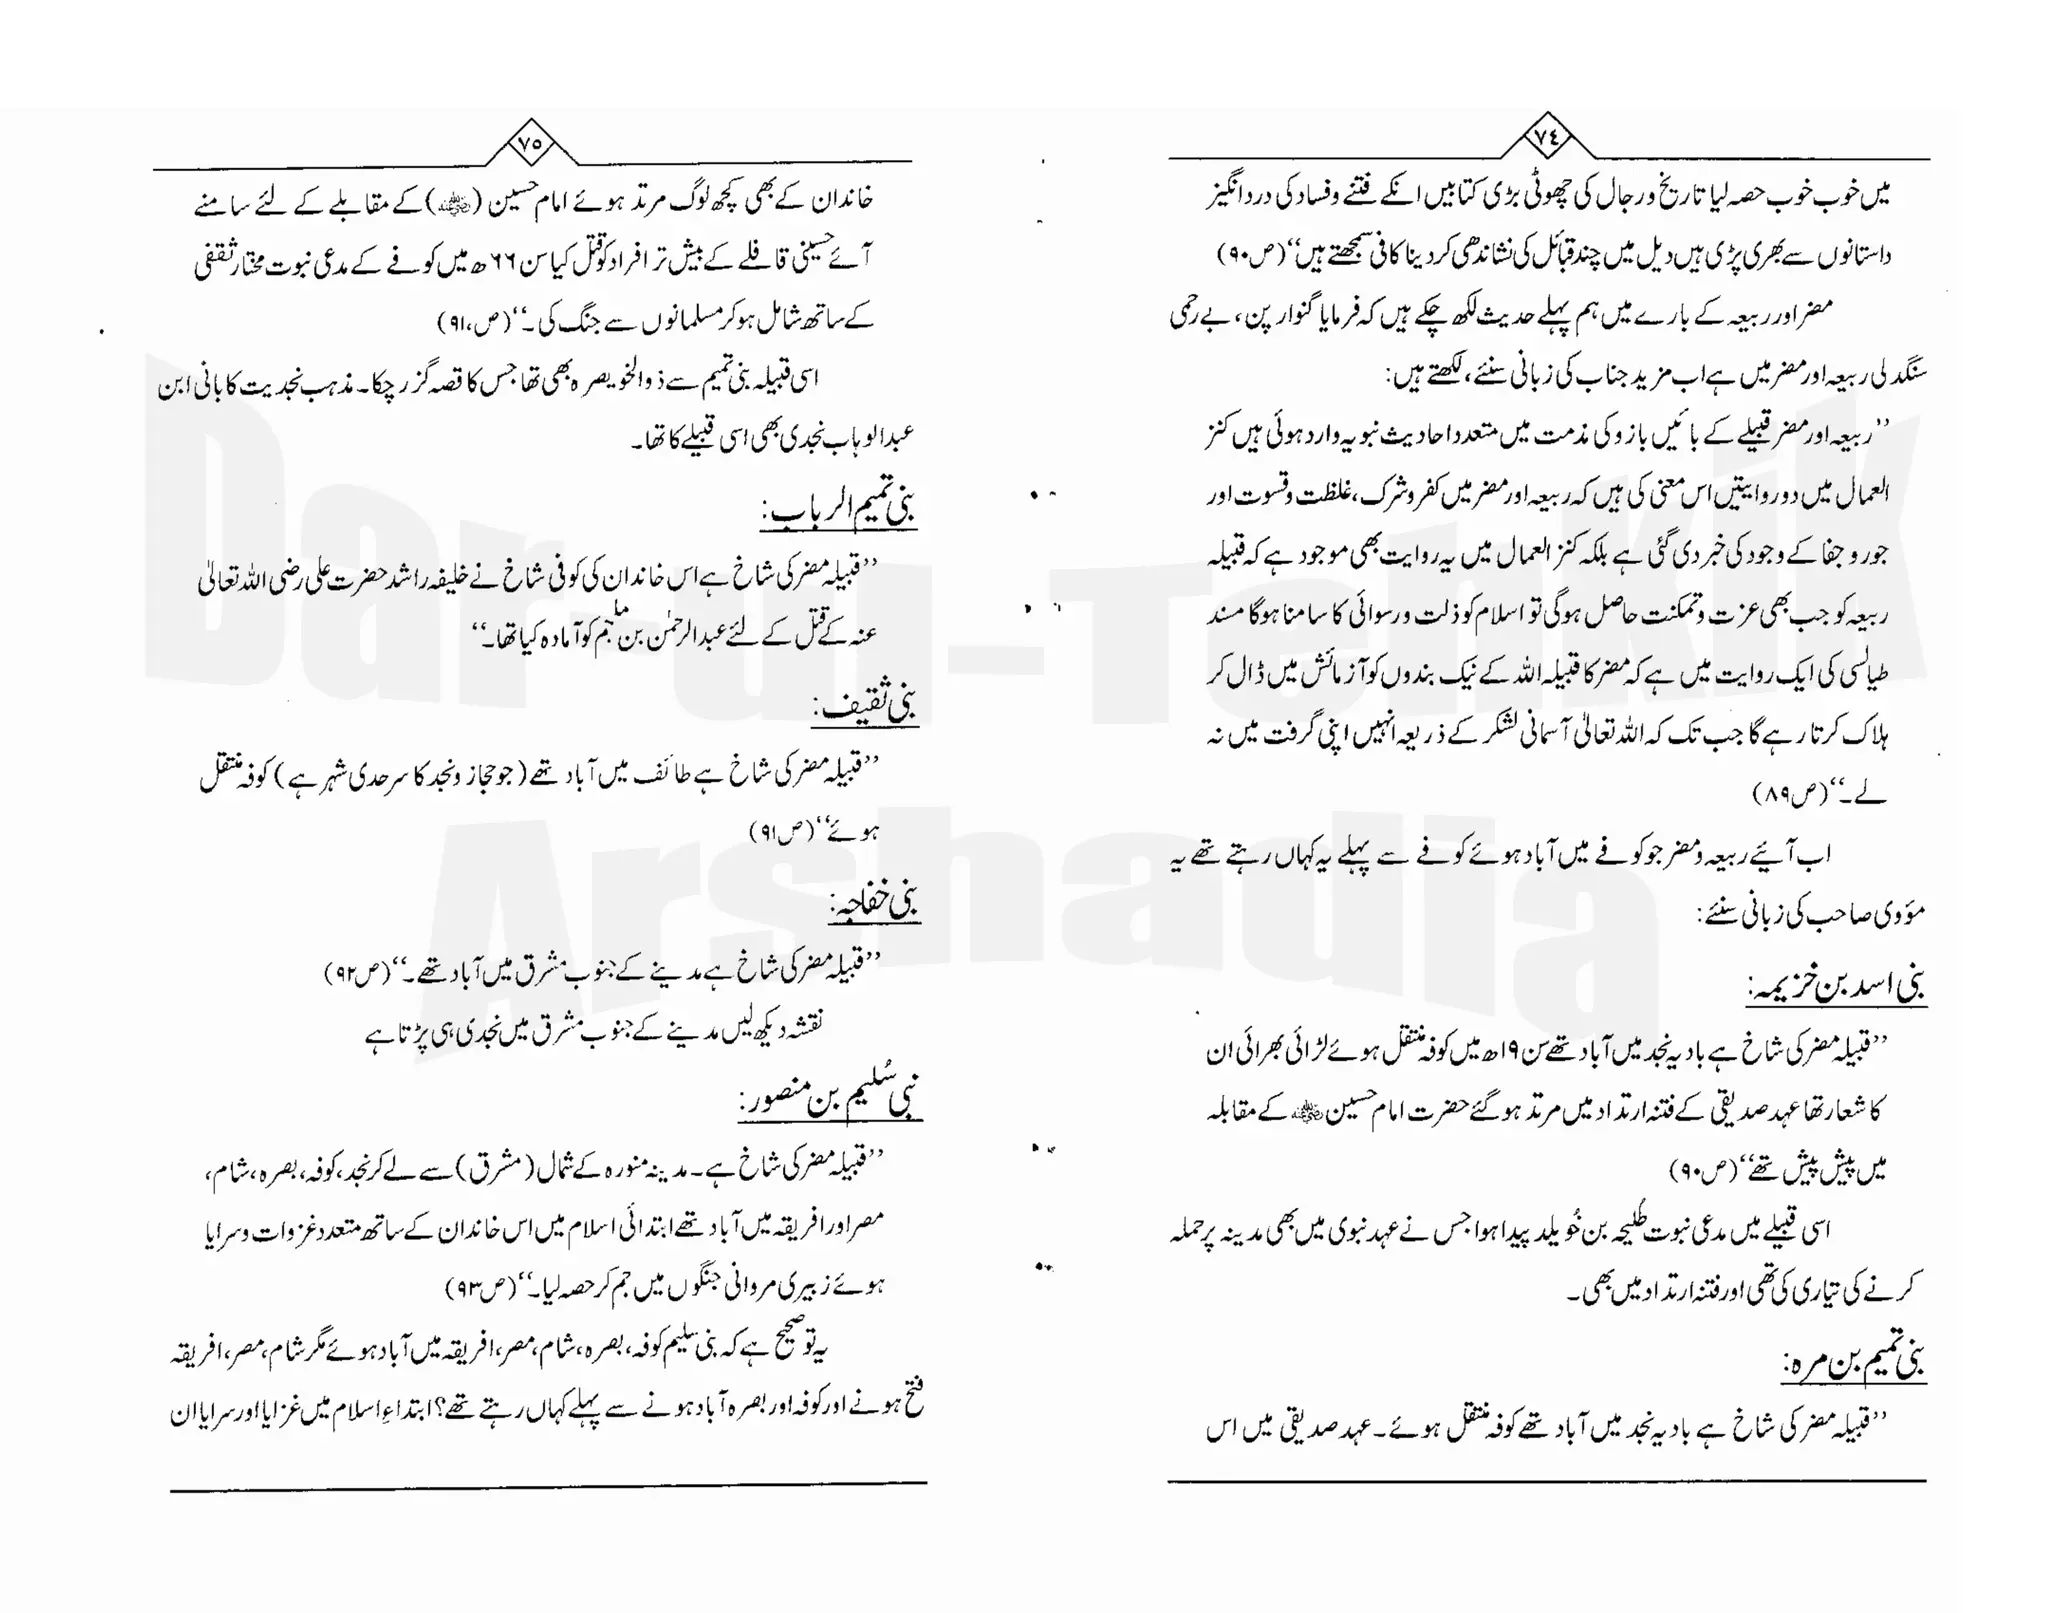 ٧٤
میں خوب خوب حصہ لیا تاریخ ورجال کی چھوٹی بڑی کتابیں انکے فتنے وفساد کی دردانگیز
داستانوں سے بھری پڑی ہیں دیل میں چند قبائل کی نشاندھی کر دینا کافی سمجھتے ہیں‘‘(ص۹۰)
مضر اور ربیعہ کے بارے میں ہم پہلے حدیث لکھ چکے ہیں کہ فرمایا گنوار پن، بے رحمی
سنگدلی ربیعہ اور مضر میں ہے اب مزید جناب کی زبانی سنئے، لکھتے ہیں:
’’ربیعہ اور مضر قبیلے کے بائیں بازو کی مذمت میں متعدد احادیث نبویہ وارد ہوئی ہیں کنز
العمال میں دو روایتیں اس معنی کی ہیں کہ ربیعہ اور مضر میں کفر وشرک، غلظت وقسوت اور
جور و جفا کے وجود کی خبر دی گئی ہے بلکہ کنز العمال میں یہ روایت بھی موجود ہے کہ قبیلہ
ربیعہ کو جب بھی عزت وتمکنت حاصل ہوگی تو اسلام کو ذلت ورسوائی کا سامنا ہوگا مسند
طیالسی کی ایک روایت میں ہے کہ مضر کا قبیلہ اللہ کے نیک بندوں کو آزمائش میں ڈال کر
ہلاک کرتا رہے گا جب تک کہ اللہ تعالیٰ آسمانی لشکر کے ذریعہ انہیں اپنی گرفت میں نہ
لے۔‘‘(ص۸۹)
اب آئیے ربیعہ ومضر جو کوفے میں آباد ہوئے کوفے سے پہلے یہ کہاں رہتے تھے یہ
مؤوی صاحب کی زبانی سنئے:
بنی اسد بن خزیمہ:
’’قبیلہ مضر کی شاخ ہے بادیہ نجد میں آباد تھے سن ۱۹ھ میں کوفہ منتقل ہوئے لڑائی بھرائی ان
کا شعار تھا عہد صدیقی کے فتنہ ارتداد میں مرتد ہوگئے حضرت امام حسین ؓ کے مقابلہ
میں پیش پیش تھے‘‘(ص۹۰)
اسی قبیلے میں مدعی نبوت طلیحہ بن خُویلد پیدا ہوا جس نے عہد نبوی میں بھی مدینہ پر حملہ
کرنے کی تیاری کی تھی اور فتنہ ارتداد میں بھی۔
بنی تمیم بن مرہ:
’’قبیلہ مضر کی شاخ ہے بادیہ نجد میں آباد تھے کوفہ منتقل ہوئے۔ عہد صدیقی میں اس
٧٥
خاندان کے بھی کچھ لوگ مرتد ہوئے امام حسین (ؓ) کے مقابلے کے لئے سامنے
آئے حسینی قافلے کے بیش تر افراد کو قتل کیا سن ۶۶ھ میں کوفے کے مدعی نبوت مختار ثقفی
کے ساتھ شامل ہو کر مسلمانوں سے جنگ کی۔‘‘(ص،۹۱)
اسی قبیلہ بنی تمیم سے ذوالخویصرہ بھی تھا جس کا قصہ گزر چکا۔ مذہب نجدیت کا بانی ابن
عبدالوہاب نجدی بھی اسی قبیلے کا تھا۔
بنی تمیم الرباب:
’’قبیلہ مضر کی شاخ ہے اس خاندان کی کوفی شاخ نے خلیفہ راشد حضرت علی رضی اللہ تعالیٰ
عنہ کے قتل کے لئے عبدالرحمٰن بن ملجم کو آمادہ کیا تھا۔‘‘
بنی ثقیف:
’’قبیلہ مضر کی شاخ ہے طائف میں آباد تھے (جو حجاز ونجد کا سرحدی شہر ہے) کوفہ منتقل
ہوئے‘‘(ص۹۱)
بنی خفاجہ:
’’قبیلہ مضر کی شاخ ہے مدینے کے جنوب مشرق میں آباد تھے۔‘‘(ص۹۲)
نقشہ دیکھ لیں مدینے کے جنوب مشرق میں نجد ہی پڑتا ہے
نبی سُلیم بن منصور:
’’قبیلہ مضر کی شاخ ہے۔ مدینہ منورہ کے شمال (مشرق) سے لے کر نجد، کوفہ، بصرہ، شام،
مصر اور افریقہ میں آباد تھے ابتدائی اسلام میں اس خاندان کے ساتھ متعدد غزوات وسرایا
ہوئے زبیری مروانی جنگوں میں جم کر حصہ لیا۔‘‘(ص۹۳)
یہ تو صحیح ہے کہ بنی سلیم کوفہ، بصرہ، شام، مصر، افریقہ میں آباد ہوئے مگر شام، مصر، افریقہ
فتح ہونے اور کوفہ اور بصرہ آباد ہونے سے پہلے کہاں رہتے تھے؟ ابتداءِ اسلام میں غزایا اور سرایا ان
Dar-ul-Tehkik
Arshadia